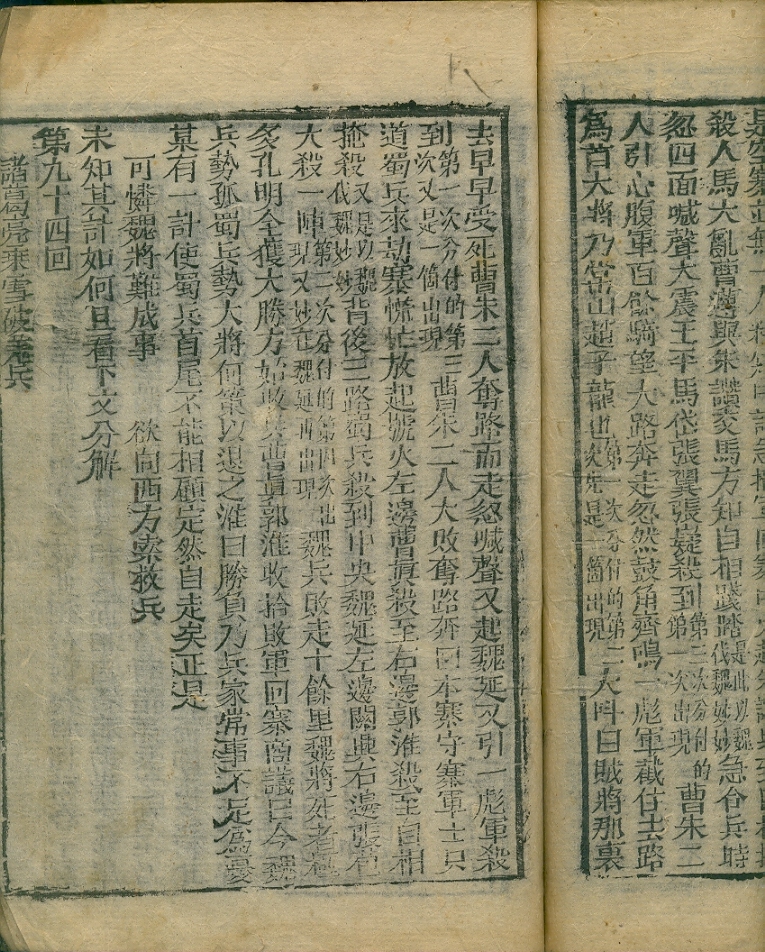 殺人馬大亂曹遵與朱讚交馬方知自相踐踏是此以魏伐魏妙妙急合兵時
忽四面喊聲大震王平馬岱張翼張嶷殺到第三次分付的第一次出現曹朱二
人引心腹軍百餘騎望大路奔走忽然鼓角齊鳴一彪軍截住去路
為首大將乃常山趙子龍也第一次分付的第二次先是一箇出現大叫曰賊將那裏
去早早受死曹朱二人奪路而走忽喊聲又起魏延又引一彪軍殺
到第一次分付的第三次又是一箇出現曹朱二人大敗奪路奔回本寨守寨軍士只
道蜀兵來劫寨慌忙放起號火左邊曹眞殺至右邊郭淮殺至自相
掩殺又是以魏伐魏妙妙背後三路蜀兵殺到中央魏延左邊關興右邊張苞
大殺一陣第二次分付的第四次出現又妙在魏延再出現魏兵敗走十餘里魏將死者極
多孔明全獲大勝方始收兵曹眞郭淮收拾敗軍回寨商議曰今魏
兵勢孤蜀兵勢大將何策以退之淮曰勝負乃兵家常事不足為憂
某有一計使蜀兵首尾不能相顧定然自走矣正是
可憐魏將難成事 欲向西方索救兵
未知其計如何且看下文分解
第九十四回
諸葛亮乘雪破羌兵